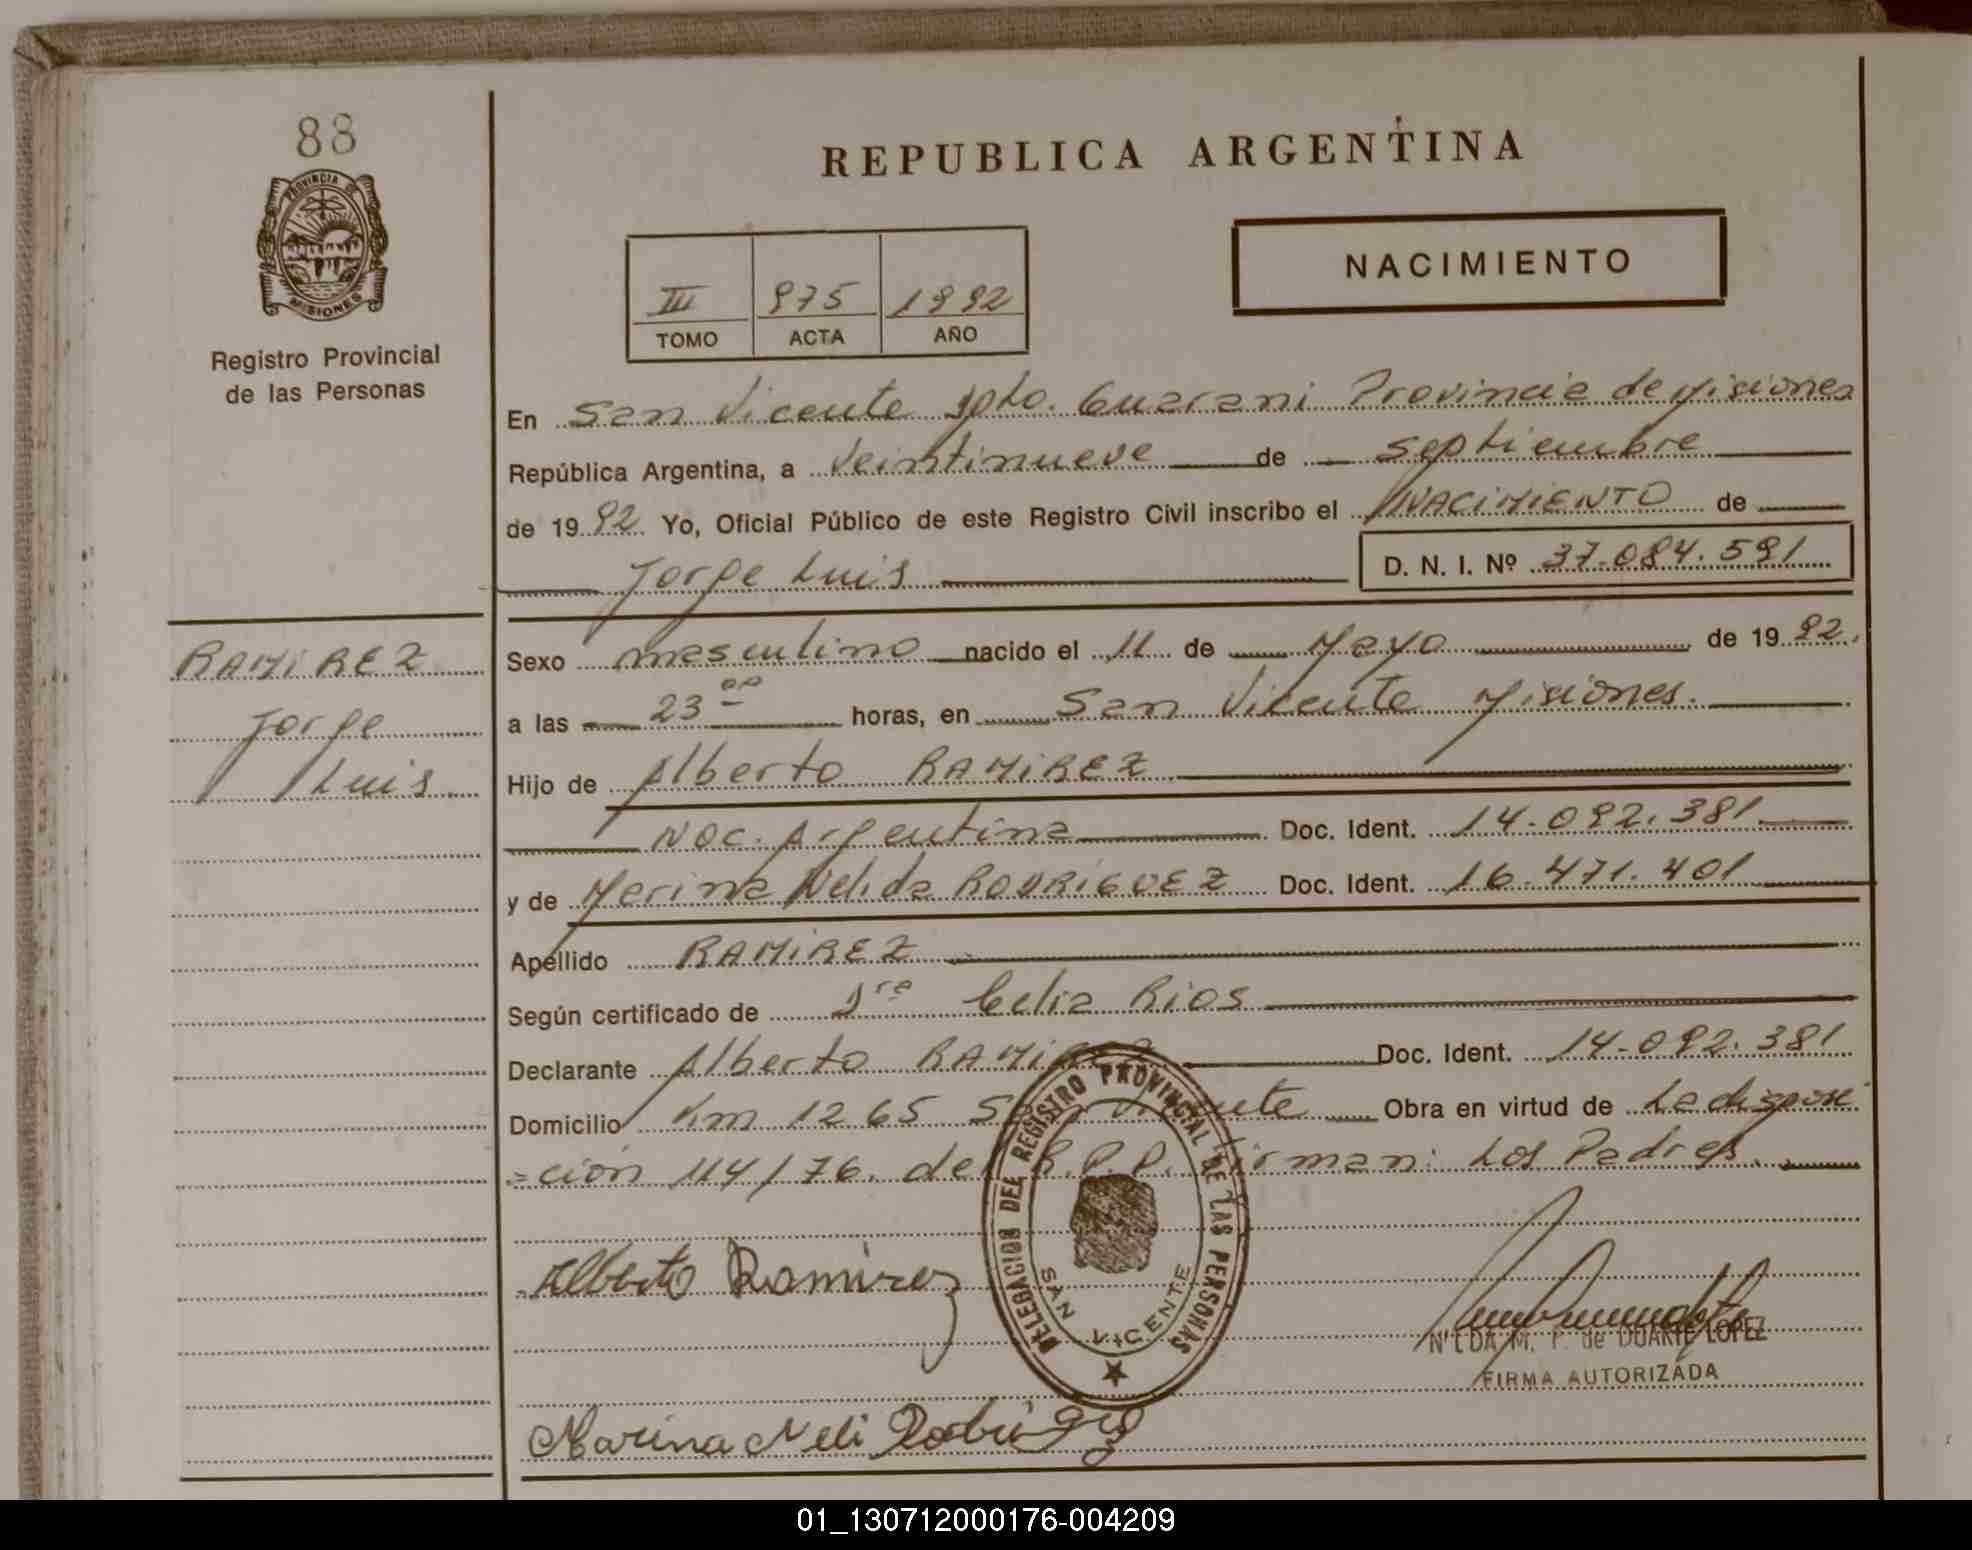 88
PROVINCIA DE
MISIONES
Registro Provincial
de las Personas
RAMIREZ
Jorge
Luis
REPUBLICA ARGENTINA
NACIMIENTO
III 975 1992
TOMO ACTA AÑO
En San Vicente Dpto. Guarani Provincia de Misiones
República Argentina, a Veintinueve de Septiembre
de 1992 Yo, Oficial Público de este Registro Civil inscribo el NACIMIENTO de
Jorge Luis D. N. I. Nº 37.084.591
Sexo masculino nacido el 11 de Mayo de 1992.
a las 23 00 horas, en San Vicente Misiones.
Hijo de Alberto RAMIREZ
Nac. Argentina Doc. Ident. 14.092.381
y de Marina Nelida RODRIGUEZ Doc. Ident. 16.471.401
Apellido RAMIREZ
Según certificado de Dra Celia Rios
Declarante Alberto RAMIREZ Doc. Ident. 14.092.381
Domicilio Km 1265 San Vicente Obra en virtud de La disposi
=ción 114/76. del R.P.P. Firman: Los Padres.
DELEGACION DEL REGISTRO PROVINCIAL DE LAS PERSONAS
SAN VICENTE
Alberto Ramirez
NELDA M. P. de DUARTE LOPEZ
FIRMA AUTORIZADA
Marina Neli Rodriguez
01_130712000176-004209